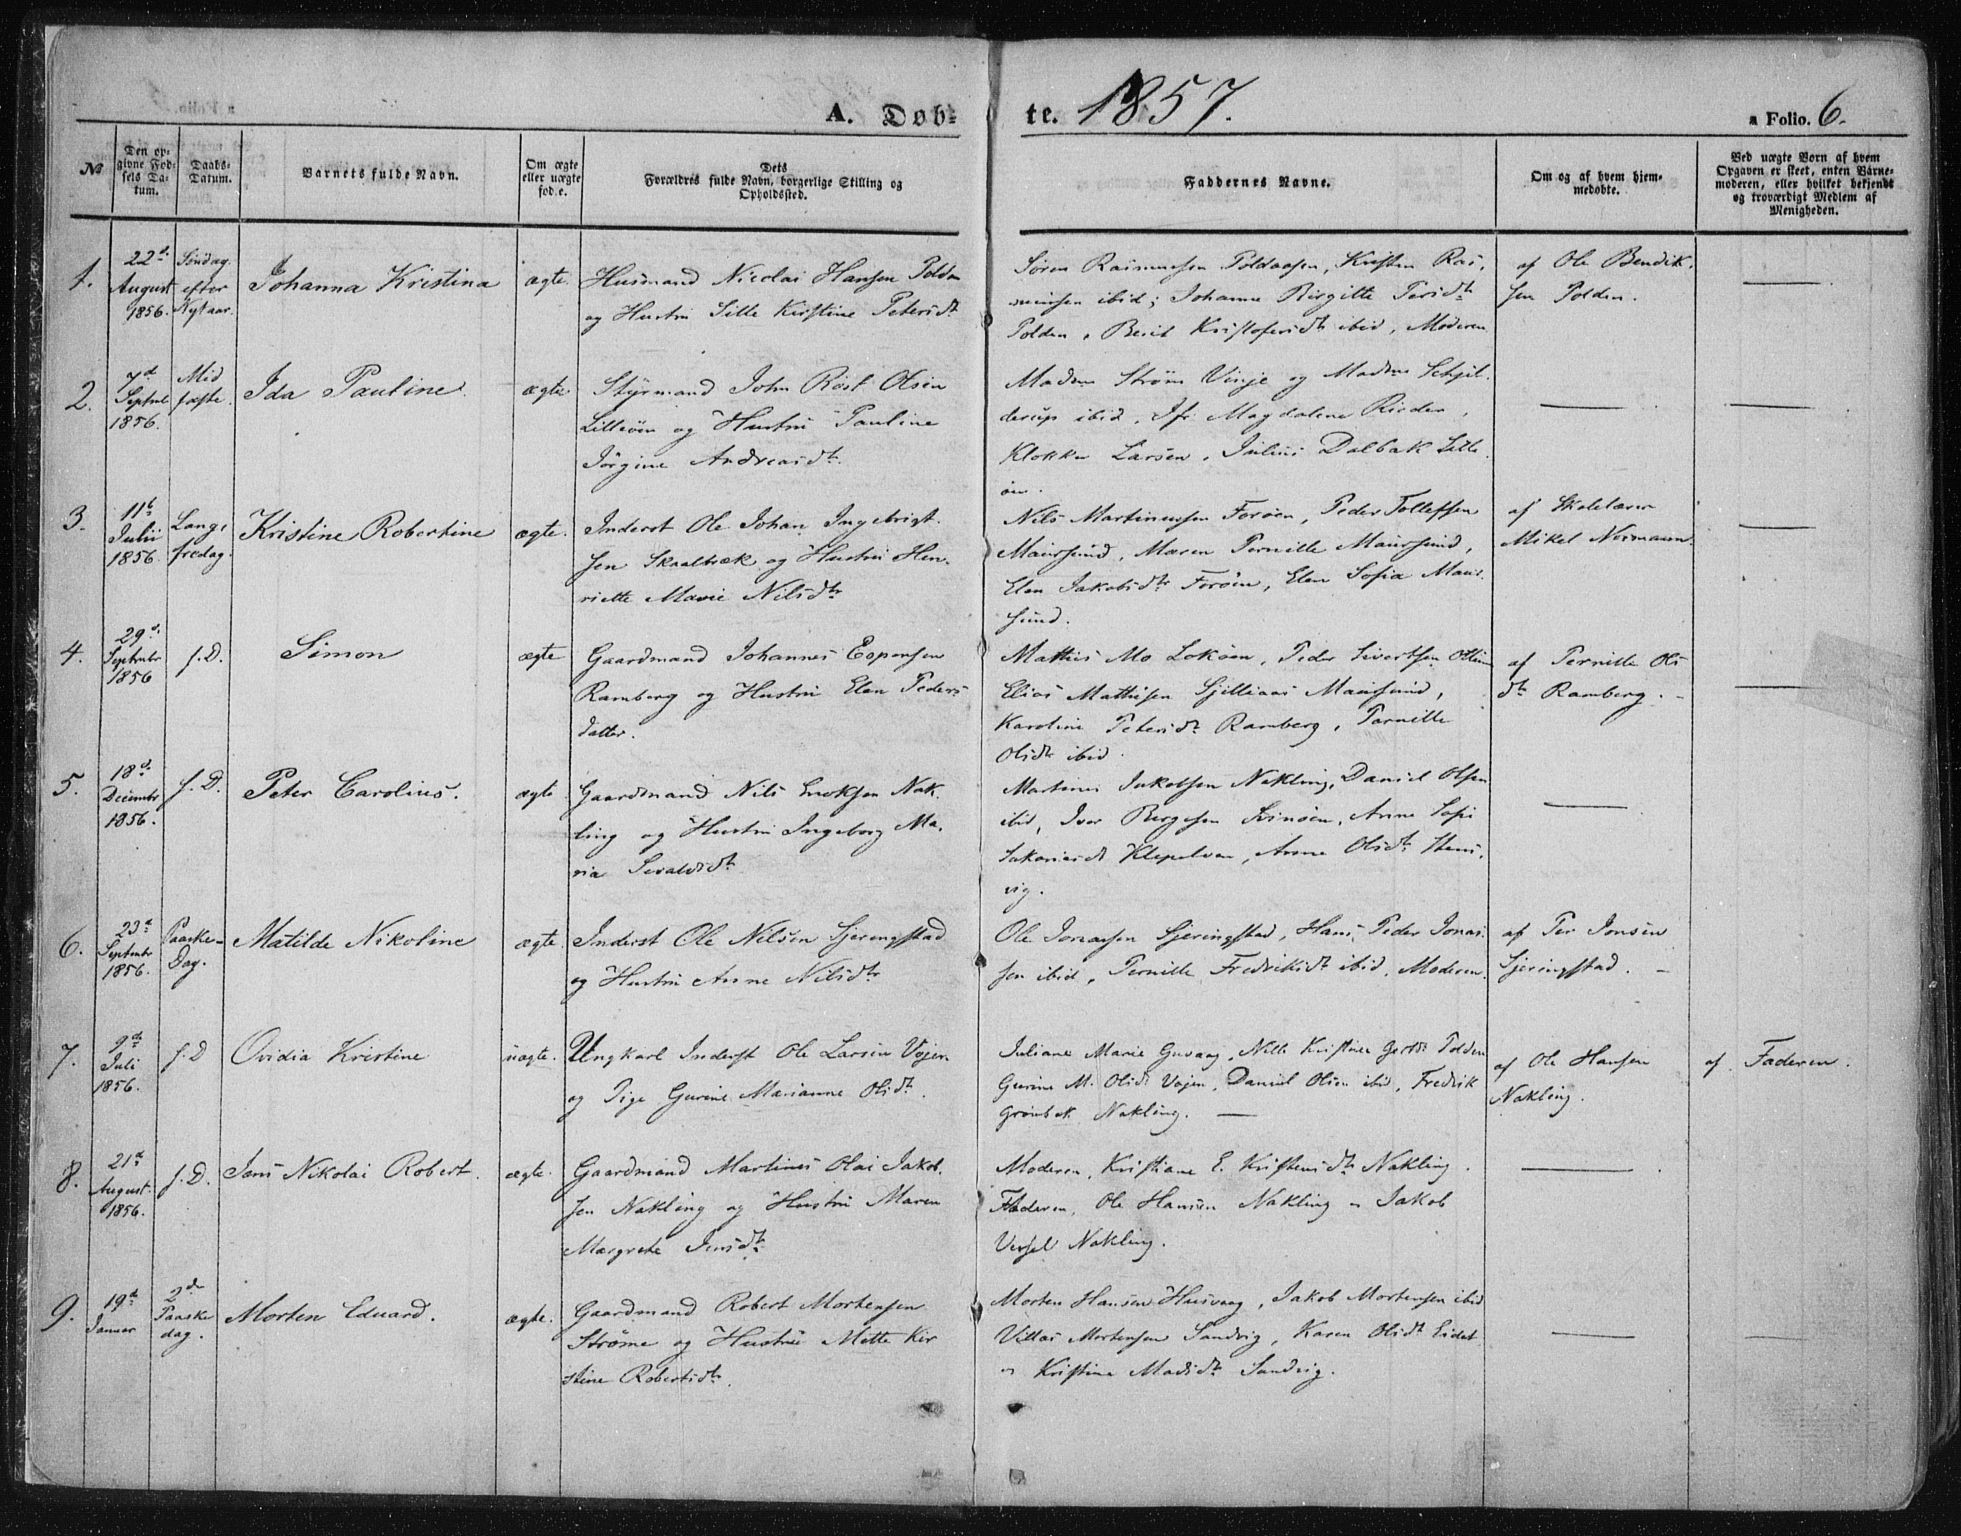 A. Døb-
te. 1857.
a Folio. 6.
№
Den op-
givne Fød-
sels Da-
tum.
Daabs-
Datum.
Barnets fulde Navn.
Om ægte
eller uægte
fød.e.
Dets
Forældres fulde Navn, borgerlige Stilling og
Opholdssted.
Faddernes Navne.
Om og af hvem hjem-
medøbte.
Ved uægte Børn af hvem
Opgaven er skeet, enten Barne-
moderen, eller hvilket bekjendt
og troværdigt Medlem af
Menigheden.
1.
22d.
August
1856.
Søndag
efter
Nytaar.
Johanna Kristina
ægte.
Husmand Nicolai Hansen Polden
og Hustru Sille Kirstine Petersdt.
Søren Rasmussen Poldaasen, Kristen Ras-
mussen ibid; Johanna Birgitte
Polden, Berit Kristofersdt. ibid, Moderen
af Ole Bendik-
sen Polden.
2.
7d
Septbr
1856.
Mid
faste.
Ida Pauline.
ægte
Styrmand John Röst Olsen
Lilleöen og Hustru Pauline
Jörgine Andreasdt.
Madm Ström Vinje og Madm Schjel-
derup ibid, Jfr. Magdalene
Klokker Larsen, Julius Dalbak Lille-
öen.
3.
11te
Julii
1856.
Lang-
fredag.
Kristine Robertine
ægte.
Inderst Ole Johan Ingebrigt-
sen Skaalbræk og Hustru Hen-
riette Marie Nilsdtr
Nils Martinussen Foröen, Peder Tollefsen
Maursund, Maren Pernille Maursund,
Elen Jakobsdtr Foröen, Elen Sofia Maur-
sund.
af Skolelærer
Mikel Normann.
4.
29d.
Septembr
1856
f. D.
Simon
ægte
Gaardmand Johannes Espensen
Ramberg og Hustru Elen Peders-
datter.
Mathis Mo Loköen, Peder Sivertsen
Elias Mathisen Maursund,
Karoline Petersdt. Ramberg, Pernille
Olsdt. ibid.
af Pernille Ols
dt. Ramberg.
5.
18d.
Decembr
1856.
f. D.
Peter Carolius.
ægte
Gaardmand Nils Enoksen Nak-
ling og Hustru Ingeborg Ma-
ria Sivaldsdt.
Martines Jakobsen Nakling, Daniel Olsen
ibid, Iver Bergesen Svinöen, Anne Sofi
Sakariasdt Klepelven, Anne Olsdt.
vig.
6.
23d
Septembr
1856.
Paaske-
Dag.
Matilde Nikoline
ægte.
Inderst Ole Nilsen Gjeringstad
og Hustru Anne Nilsdtr
Ole Jonassen Gjeringstad, Hans Peder Jonas-
sen ibid, Pernille Fredriksdt. ibid, Moderen.
af Per Jonsen
Gjeringstad.
7.
9de
Juli
1856.
f. D
Ovidia Kristine
uægte.
Ungkarl Inderst Ole Larsen Vojen
og Pige Gurine Marianne Olsdt.
Juliane Marie Guvaag, Nille Kristine Gertsd. Polden
Gurine M. Olsdt. Vojen, Daniel Olsen ibid, Fredrik
Grönbek Nakling.
af Ole Hansen
Nakling.
af Faderen.
8.
21d
August.
1856.
f. D.
Jens Nikolai Robert.
ægte.
Gaardmand Martines Olai Jakob-
sen Nakling og Hustru Maren
Margrete Jensdt.
Moderen, Kristiane E. Kristensdt. Nakling.
Faderen, Ole Hansen Nakling & Jakob
Vessel Nakling.
9.
19d
Januar
2den
Paaske
dag.
Morten Eduard.
ægte.
Gaardmand Robert Mortensen
Ströme og Hustru Mette Kir
stine Robertsdt.
Morten Hansen Husvaag, Jakob Mortensen ibid
Villas Mortensen Sandvig, Karen Olsdt. Eidet
& Kristina Madsdt. Sandvig.